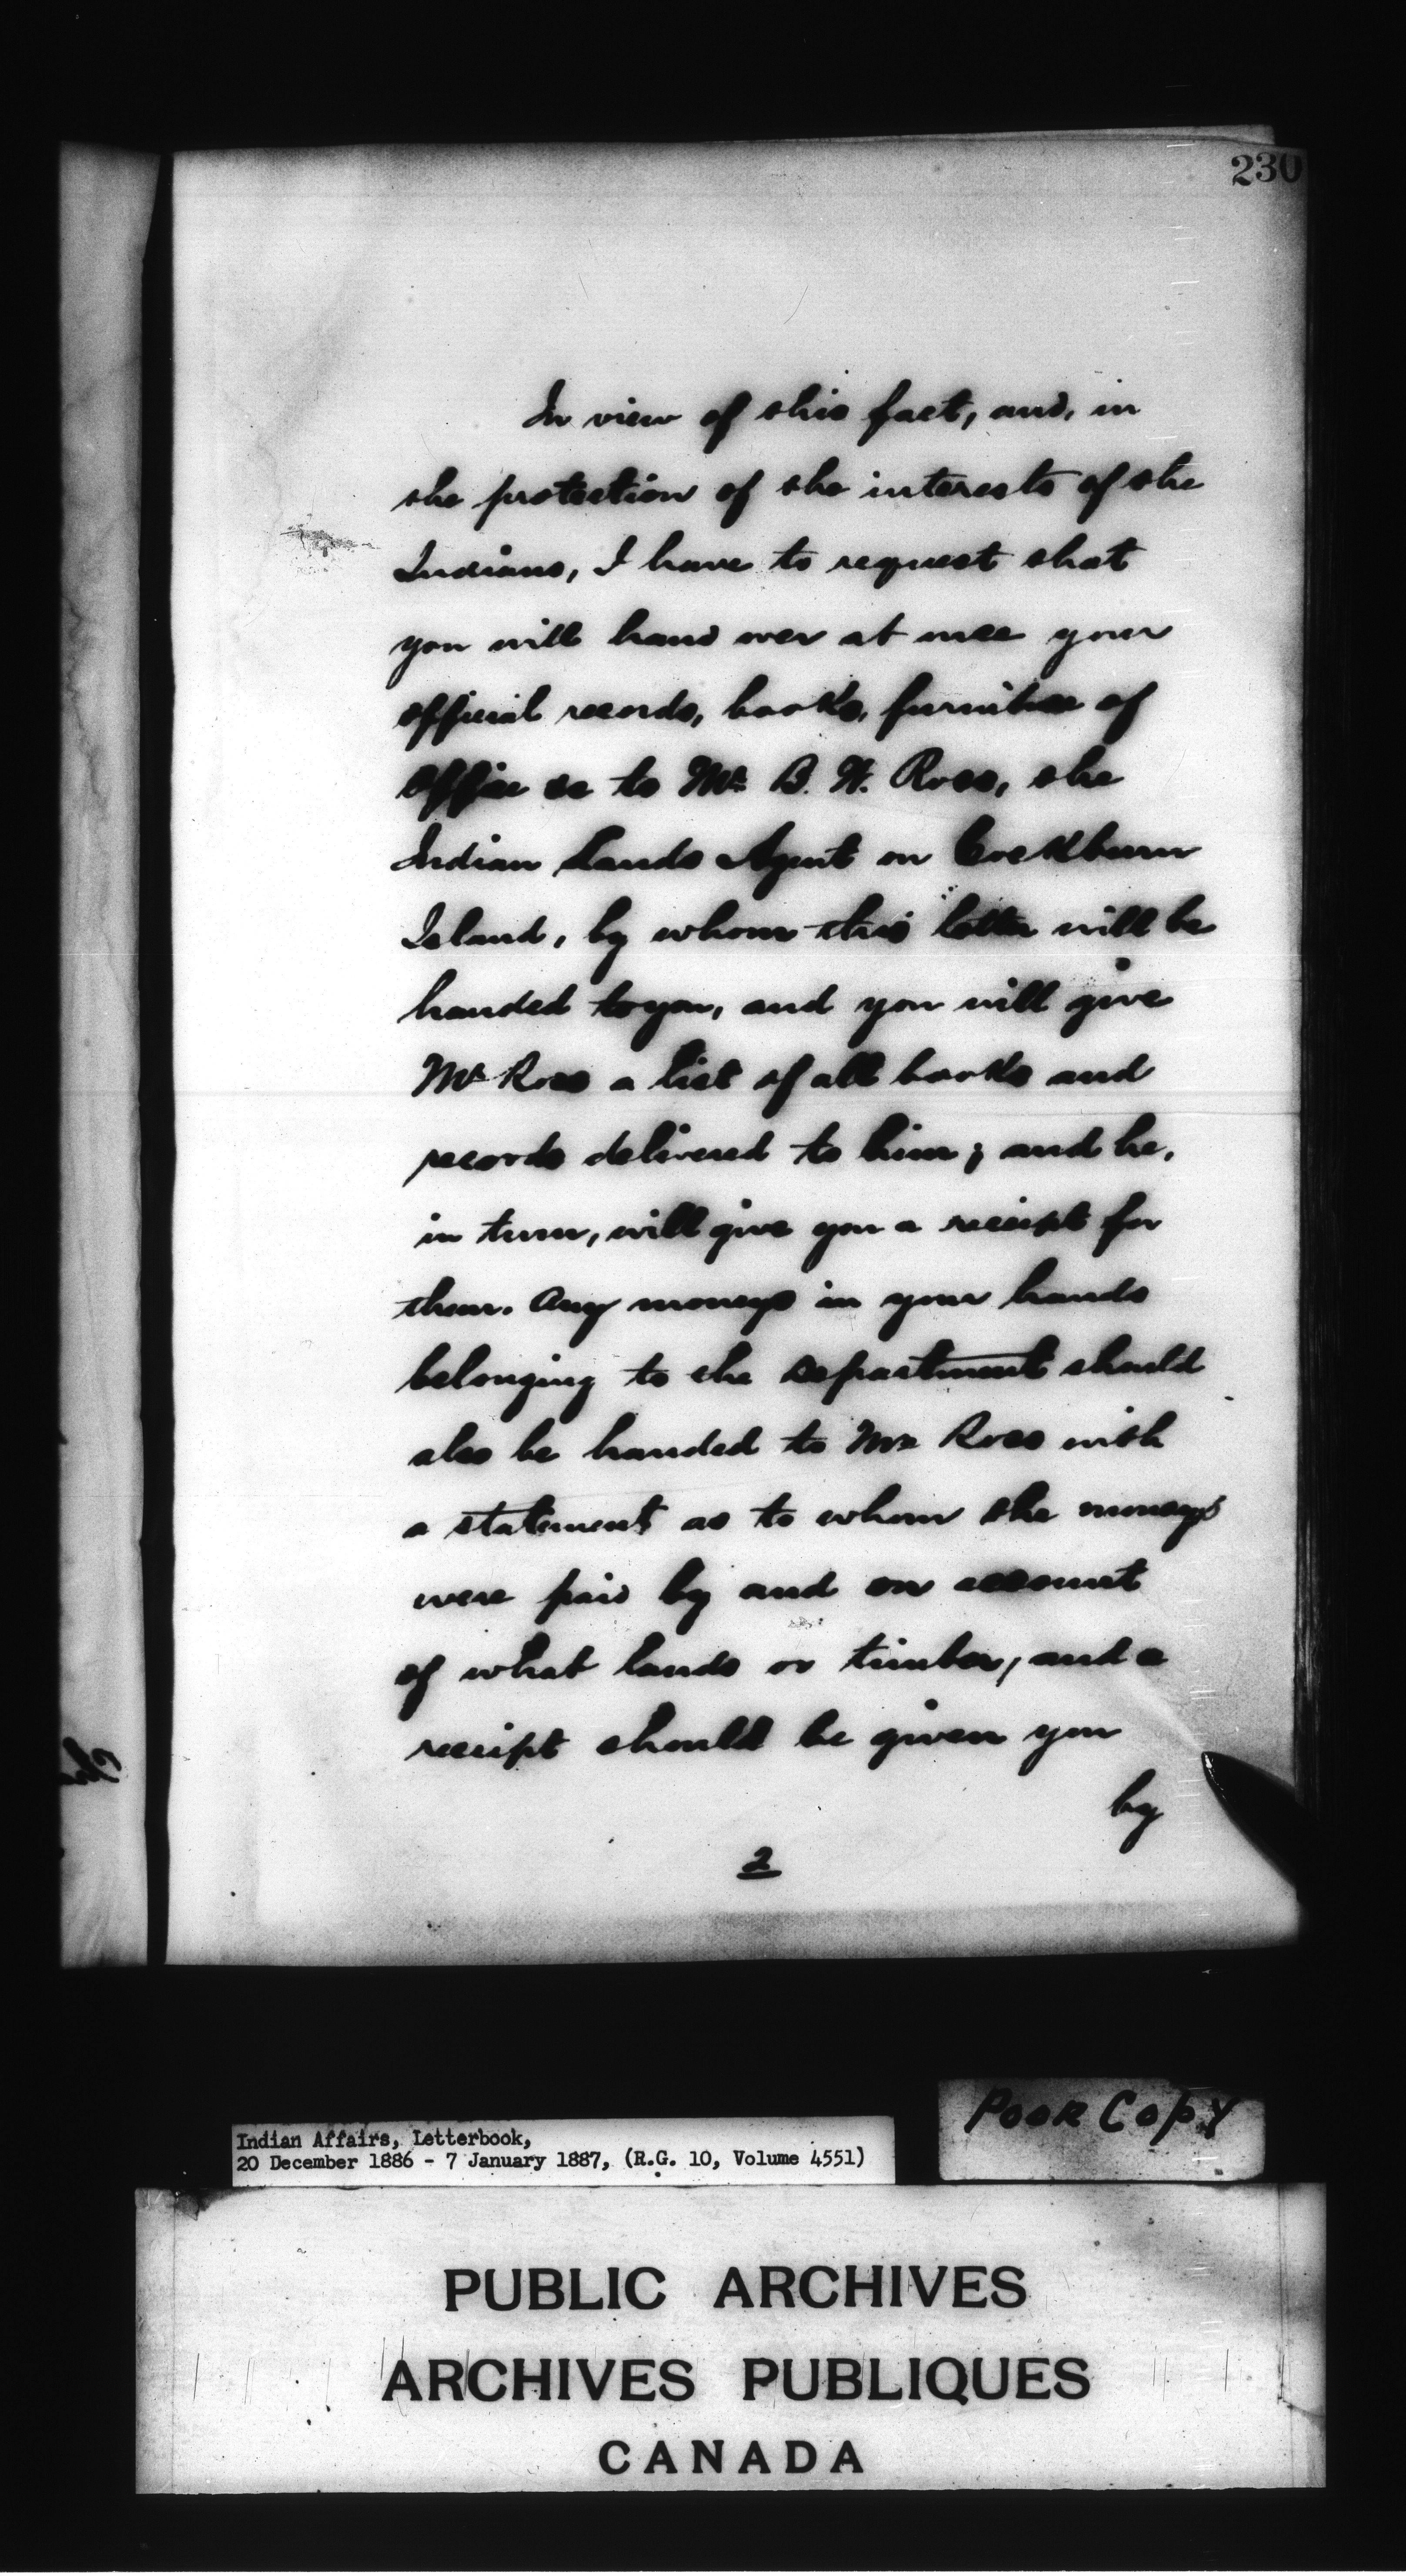 230
In view of this fact, and, in
the protection of the interests of the
Indians, I have to request that
you will hand over at once your
official records, books, furniture of
office &c to Mr B. W. Ross, the
Indian Lands Agent on Cockburn
Island, by whom this letter will be
handed to you, and you will give
Mr Ross a list of all books and
records delivered to him; and he,
in turn, will give you a receipt for
them. Any moneys in your hands
belonging to the Department should
also be handed to Mr Ross with
a statement as to whom the moneys
were paid by and on account
of what lands or timber, and a
receipt should be given you
by
2
Poor Copy
Indian Affairs, Letterbook,
20 December 1886 - 7 January 1887, (R.G. 10, Volume 4551)
PUBLIC ARCHIVES
ARCHIVES PUBLIQUES
CANADA